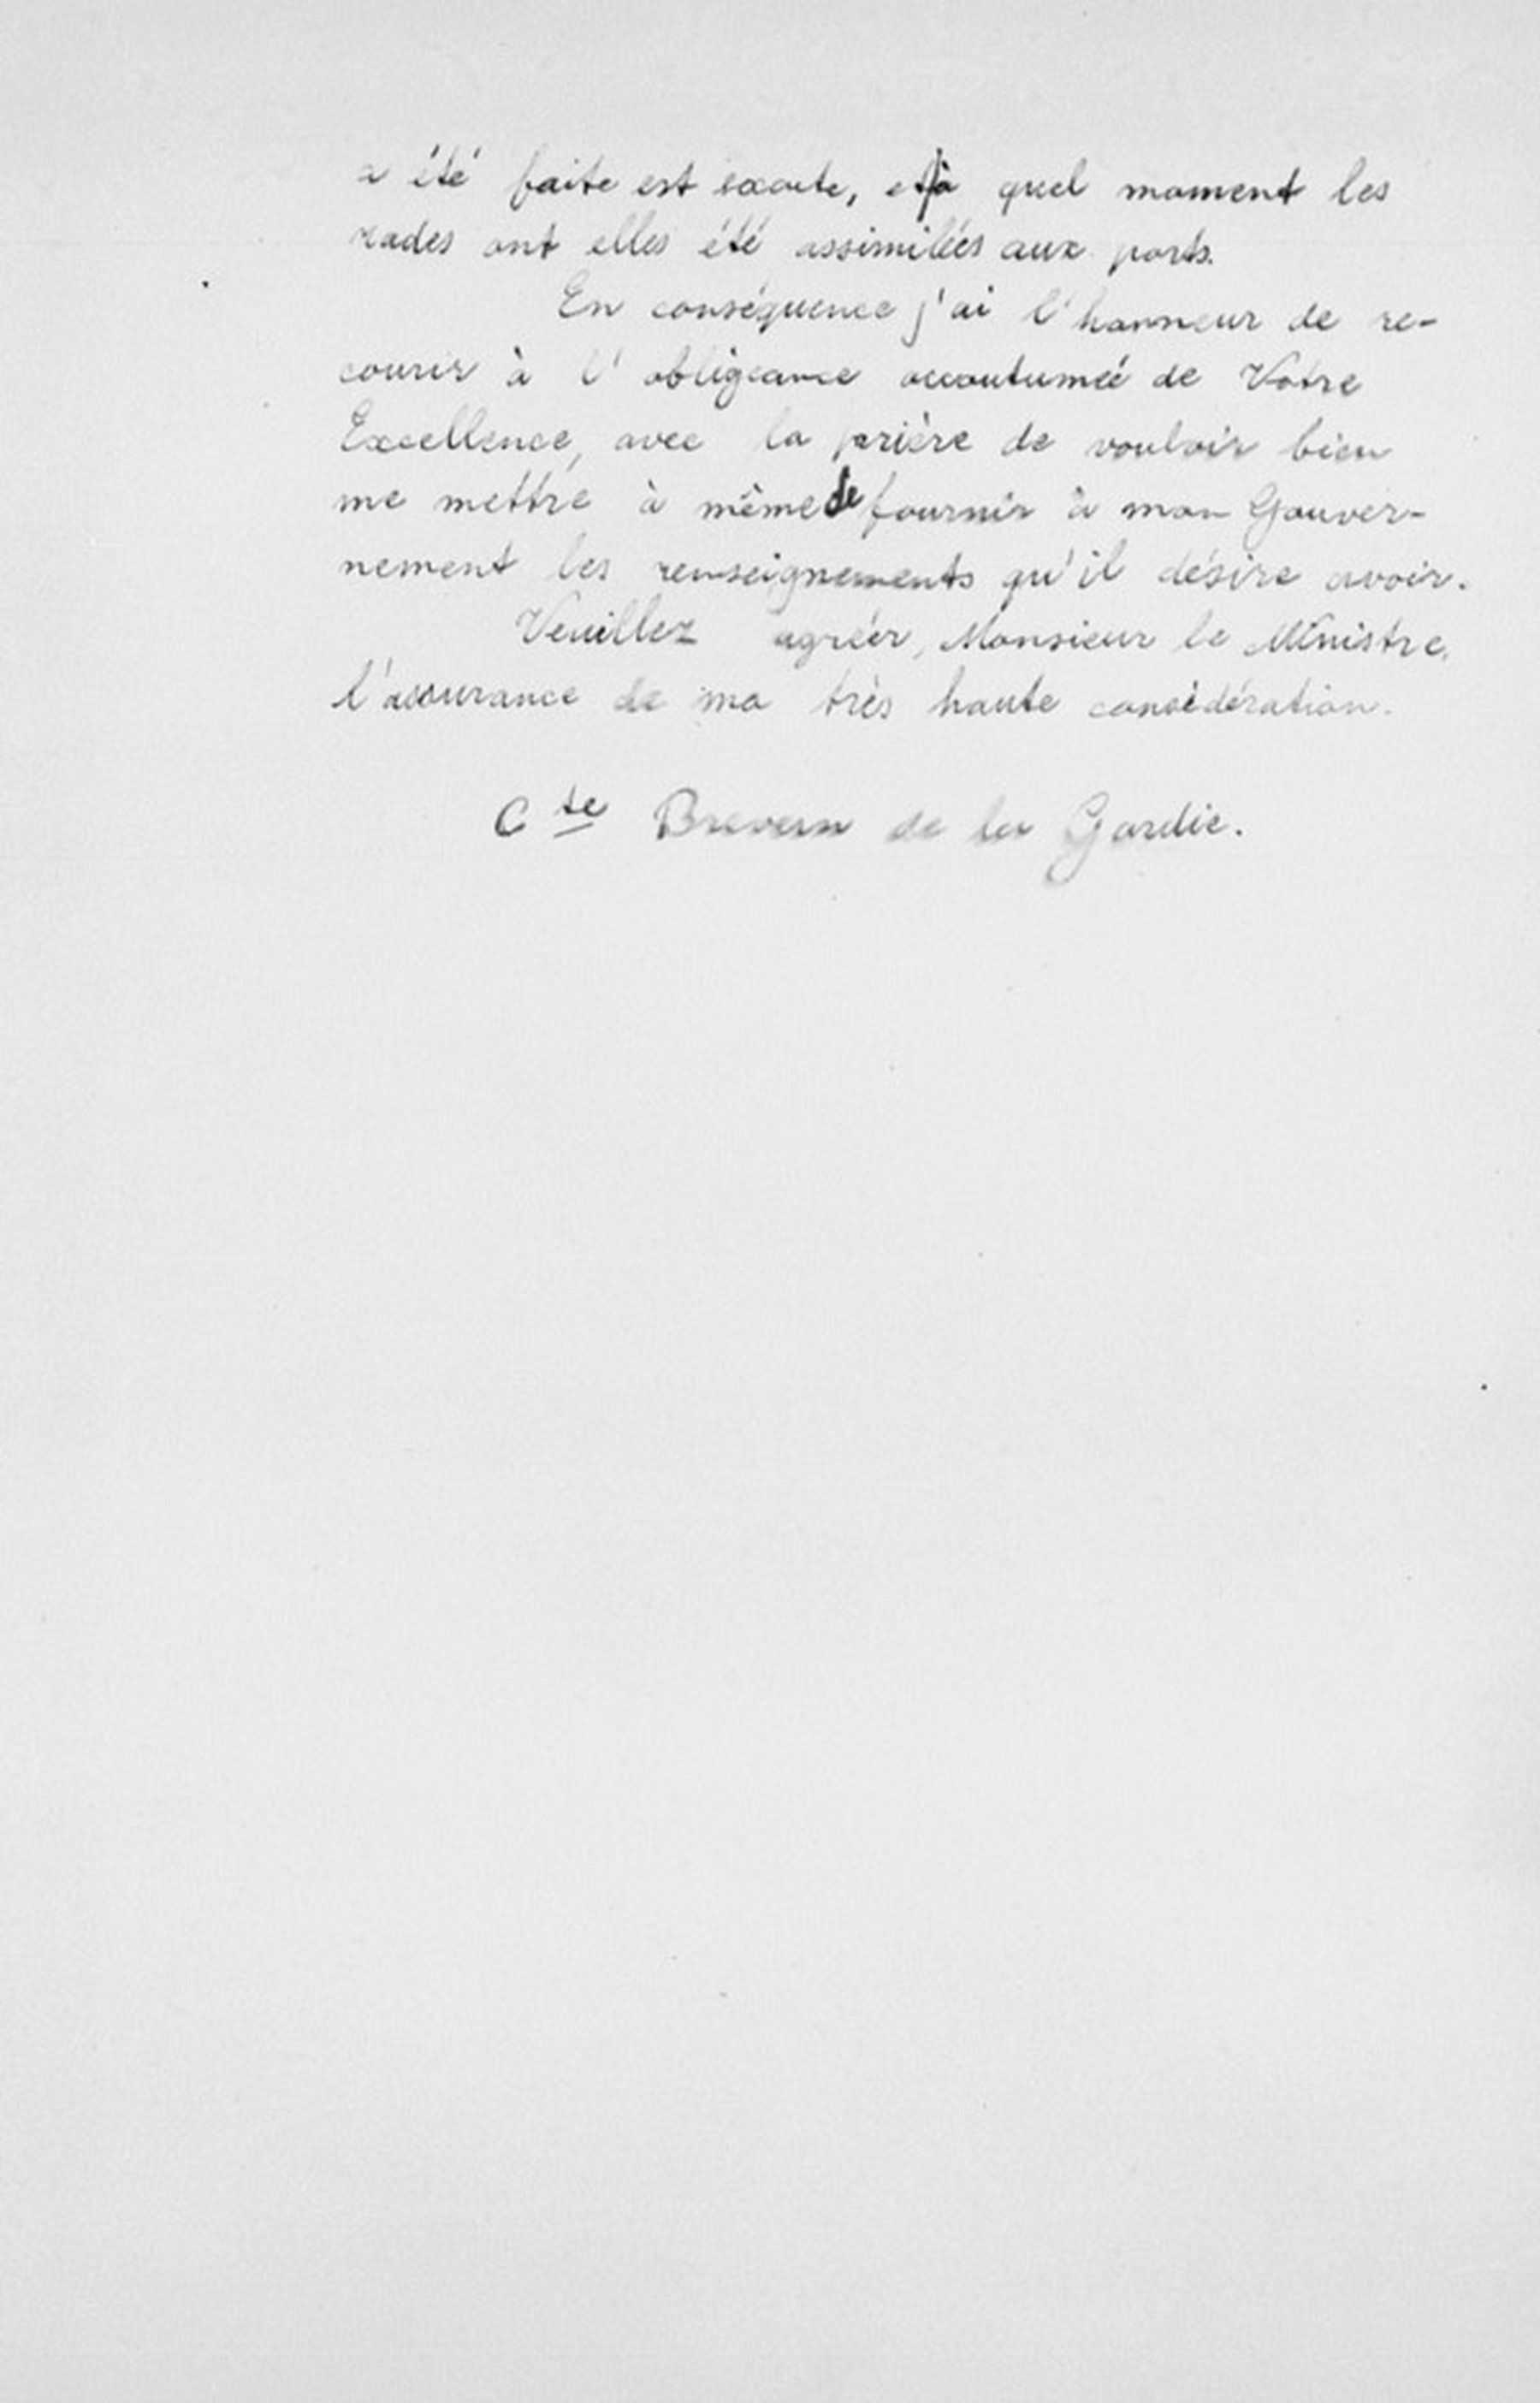 a été faite est exacte, et à quel moment les
rades ont elles été assimilées aux ports.
En conséquence j'ai l'honneur de re-
courir à l'obligeance accoutumée de Votre
Excellence, avec la prière de vouloir bien
me mettre à même de fournir à mon Gouver-
nement les renseignements qu'il désire avoir.
Veuillez agréer, Monsieur le Ministre,
l'assurance de ma très haute considération.
Cte Brevern de la Gardie.